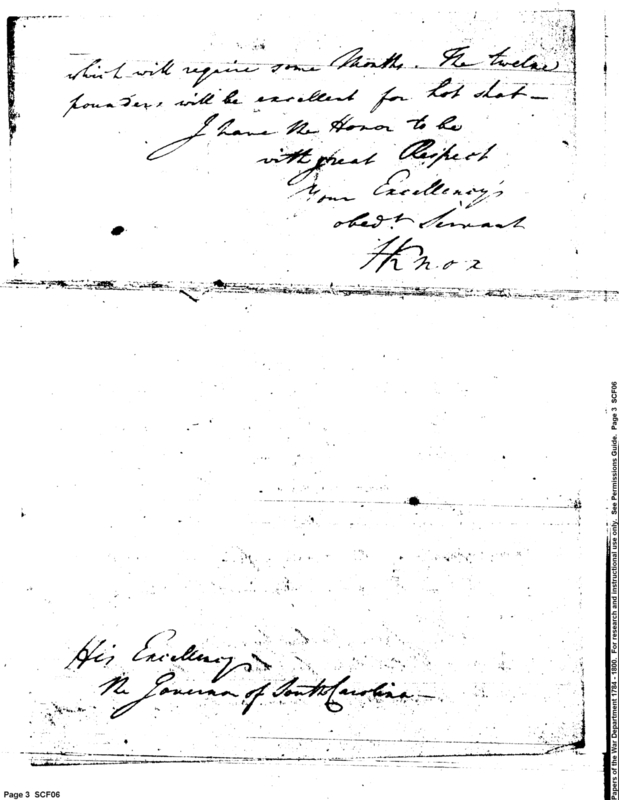 which will require some Months. The twelve
pounders will be excellent for hot shot—
I have the Honor to be
with great Respect
Your Excellency's
obedt Servant
HKnox
His Excellency
the Governor of South Carolina—
Page 3 SCF06
Papers of the War Department 1784 - 1800. For research and instructional use only. See Permissions Guide. Page 3 SCF06